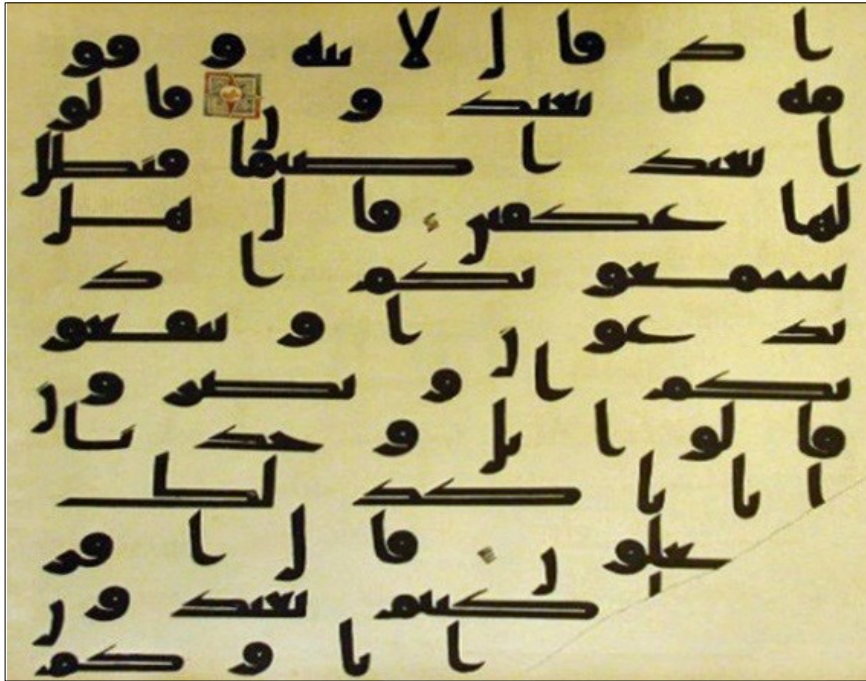 اذ قال لابيه وقو
مه ما تعبدون قالو
ا نعبد اصنما فنظل
لها عكفين قال هل
يسمعونكم اذ
تدعون او ينفعو
نكم او يضرون
قالوا بل وجدنا
ابانا كذلك
يفعلون قال افر
كنتم تعبدون
اباوكم